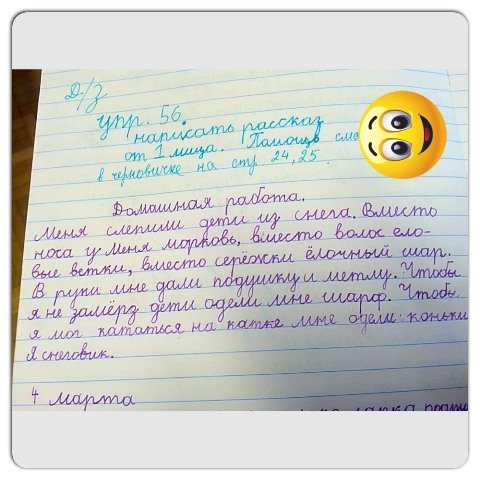 Д/з.
упр. 56.
написать рассказ
от 1 лица. Помощь
в черновичке на стр. 24, 25.
Домашная работа.
Меня слепили дети из снега. Вместо
носа у меня морковь, вместо волос ело-
вые ветки, вместо серёжки ёлочный шар.
В руки мне дали подушку и метлу. Чтобы
я не замёрз дети одели мне шарф. Чтобы
я мог кататься на катке мне одели коньки
Я снеговик.
4 марта